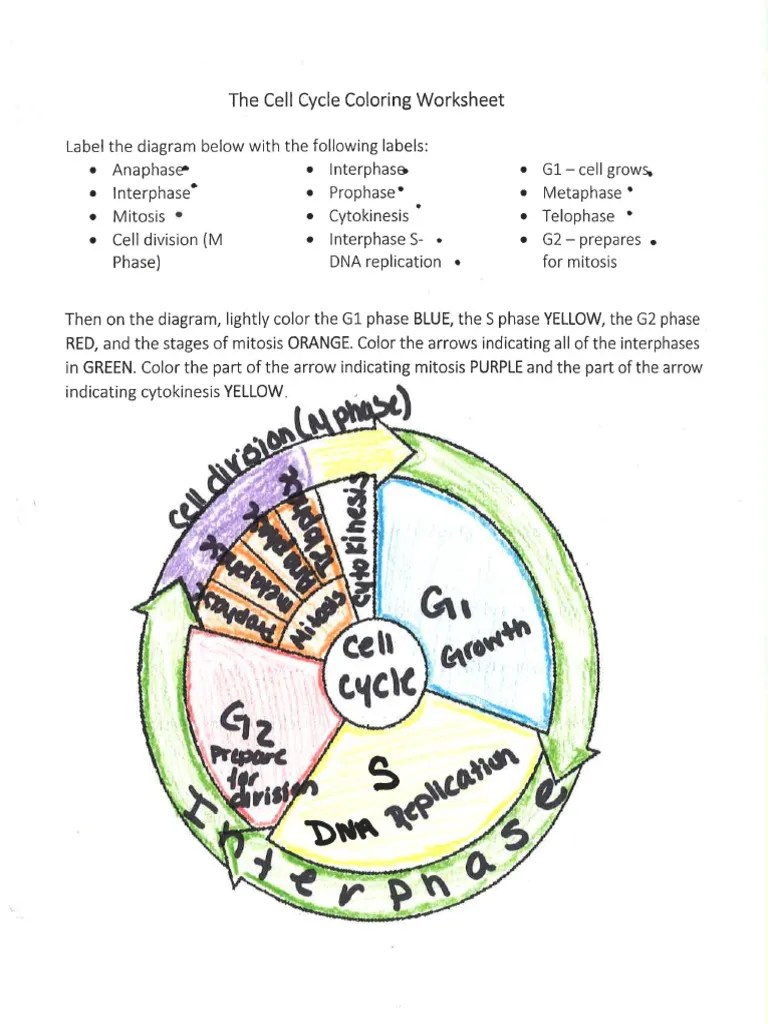 The Cell Cycle Coloring Worksheet
Label the diagram below with the following labels:
• Anaphase
• Interphase
• Mitosis
• Cell division (M
Phase)
• Interphase
• Prophase
• Cytokinesis
• Interphase S-
DNA replication
• G1 – cell grows
• Metaphase
• Telophase
• G2 – prepares
for mitosis
Then on the diagram, lightly color the G1 phase BLUE, the S phase YELLOW, the G2 phase
RED, and the stages of mitosis ORANGE. Color the arrows indicating all of the interphases
in GREEN. Color the part of the arrow indicating mitosis PURPLE and the part of the arrow
indicating cytokinesis YELLOW.
Cell division (M phase)
Prophase
metaphase
Anaphase
Telophase
Mitosis
Cytokinesis
G1
Growth
Cell
cycle
G2
Prepare
for
division
S
DNA Replication
Interphase